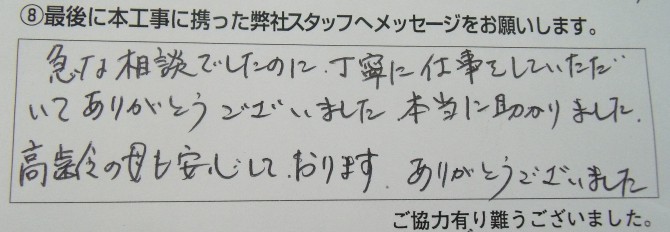 ⑧最後に本工事に携った弊社スタッフへメッセージをお願いします。
急な相談でしたのに、丁寧に仕事をしていただ
いてありがとうございました 本当に助かりました.
高齢の母も安心して、おります. ありがとうございました
ご協力有り難うございました。